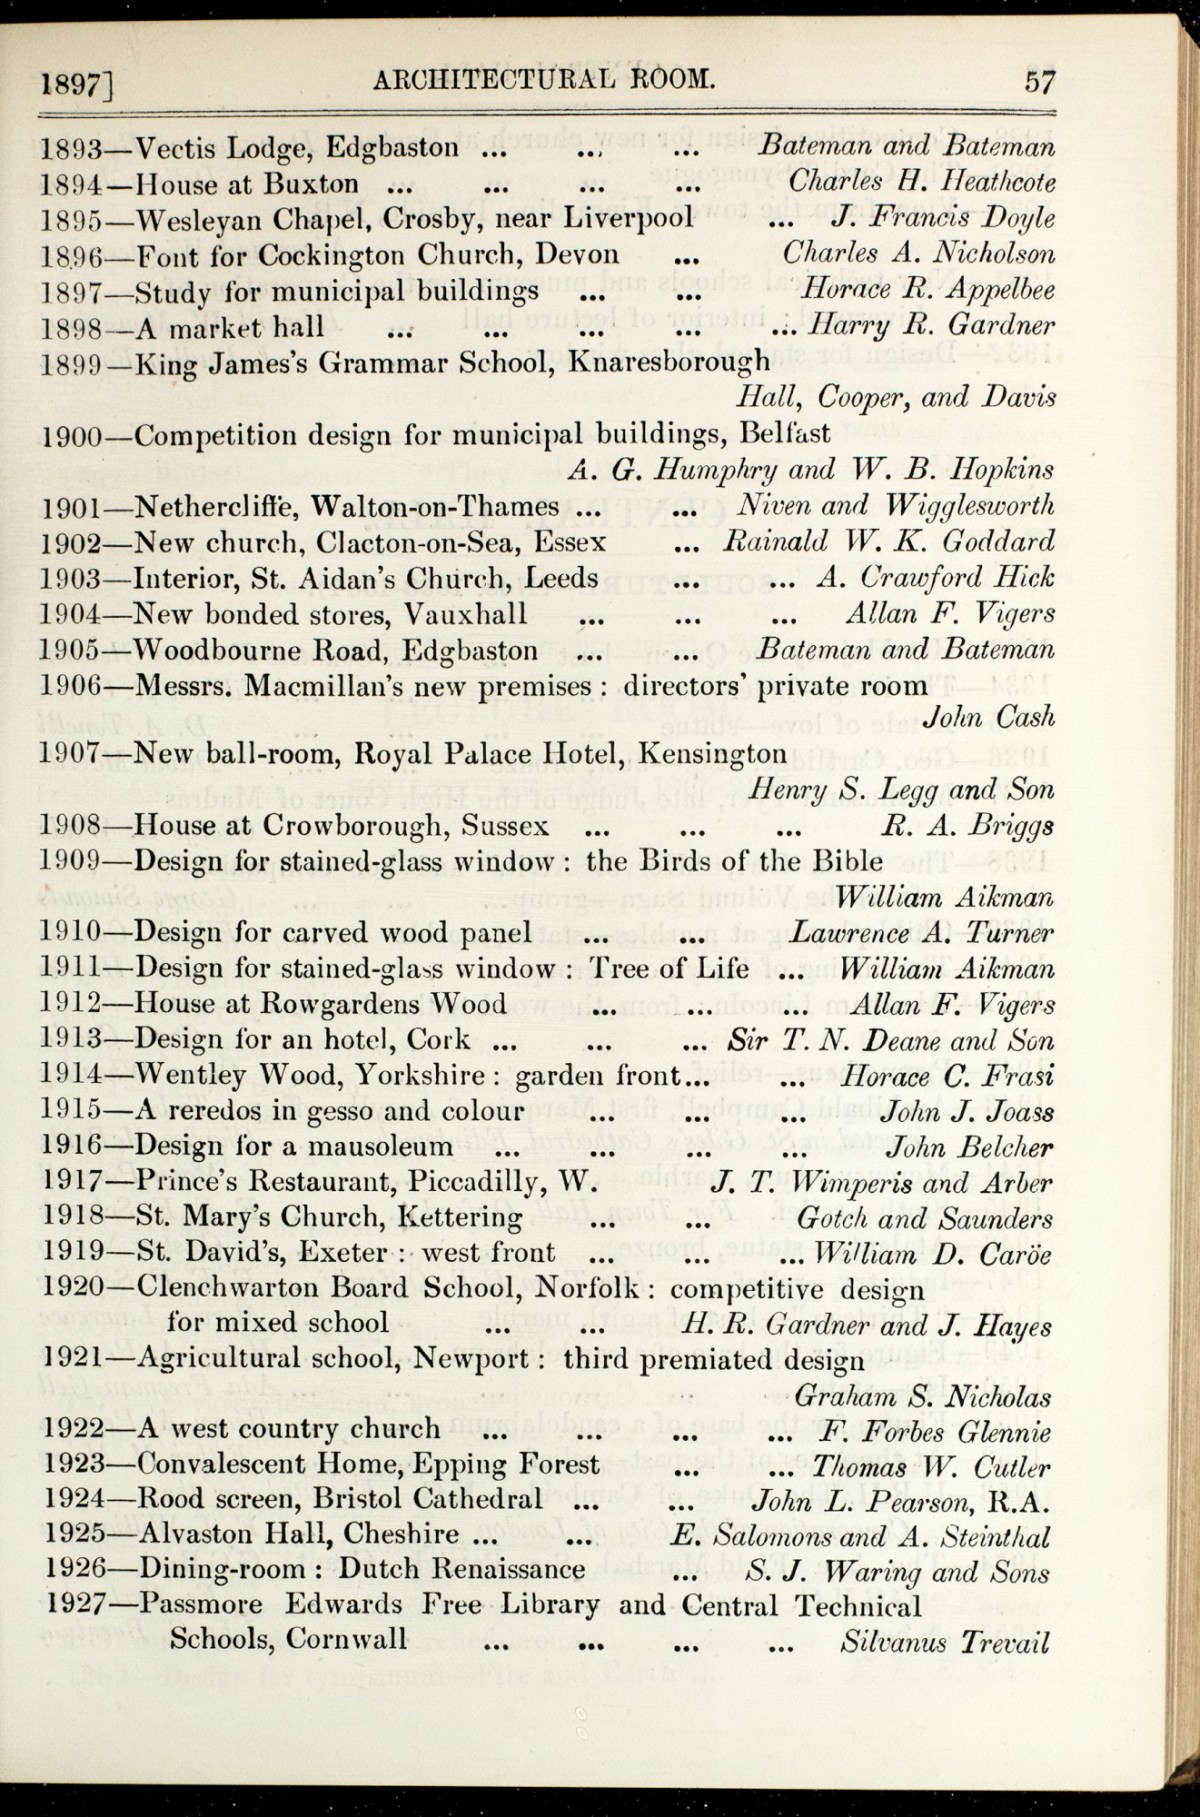 1897] ARCHITECTURAL ROOM. 57
1893—Vectis Lodge, Edgbaston ... ... ... Bateman and Bateman
1894—House at Buxton ... ... ... ... Charles H. Heathcote
1895—Wesleyan Chapel, Crosby, near Liverpool ... J. Francis Doyle
1896—Font for Cockington Church, Devon ... Charles A. Nicholson
1897—Study for municipal buildings ... ... Horace R. Appelbee
1898—A market hall ... ... ... ... ... Harry R. Gardner
1899—King James's Grammar School, Knaresborough
Hall, Cooper, and Davis
1900—Competition design for municipal buildings, Belfast
A. G. Humphry and W. B. Hopkins
1901—Nethercliffe, Walton-on-Thames ... ... Niven and Wigglesworth
1902—New church, Clacton-on-Sea, Essex ... Rainald W. K. Goddard
1903—Interior, St. Aidan's Church, Leeds ... ... A. Crawford Hick
1904—New bonded stores, Vauxhall ... ... ... Allan F. Vigers
1905—Woodbourne Road, Edgbaston ... ... Bateman and Bateman
1906—Messrs. Macmillan's new premises : directors' private room
John Cash
1907—New ball-room, Royal Palace Hotel, Kensington
Henry S. Legg and Son
1908—House at Crowborough, Sussex ... ... ... R. A. Briggs
1909—Design for stained-glass window : the Birds of the Bible
William Aikman
1910—Design for carved wood panel ... ... Lawrence A. Turner
1911—Design for stained-glass window : Tree of Life ... William Aikman
1912—House at Rowgardens Wood ... ... ... Allan F. Vigers
1913—Design for an hotel, Cork ... ... ... Sir T. N. Deane and Son
1914—Wentley Wood, Yorkshire : garden front... ... Horace C. Frasi
1915—A reredos in gesso and colour ... ... ... John J. Joass
1916—Design for a mausoleum ... ... ... ... John Belcher
1917—Prince's Restaurant, Piccadilly, W. J. T. Wimperis and Arber
1918—St. Mary's Church, Kettering ... ... Gotch and Saunders
1919—St. David's, Exeter : west front ... ... ... William D. Caröe
1920—Clenchwarton Board School, Norfolk : competitive design
for mixed school ... ... H. R. Gardner and J. Hayes
1921—Agricultural school, Newport : third premiated design
Graham S. Nicholas
1922—A west country church ... ... ... ... F. Forbes Glennie
1923—Convalescent Home, Epping Forest ... ... Thomas W. Cutler
1924—Rood screen, Bristol Cathedral ... ... John L. Pearson, R.A.
1925—Alvaston Hall, Cheshire ... ... E. Salomons and A. Steinthal
1926—Dining-room : Dutch Renaissance ... S. J. Waring and Sons
1927—Passmore Edwards Free Library and Central Technical
Schools, Cornwall ... ... ... ... Silvanus Trevail